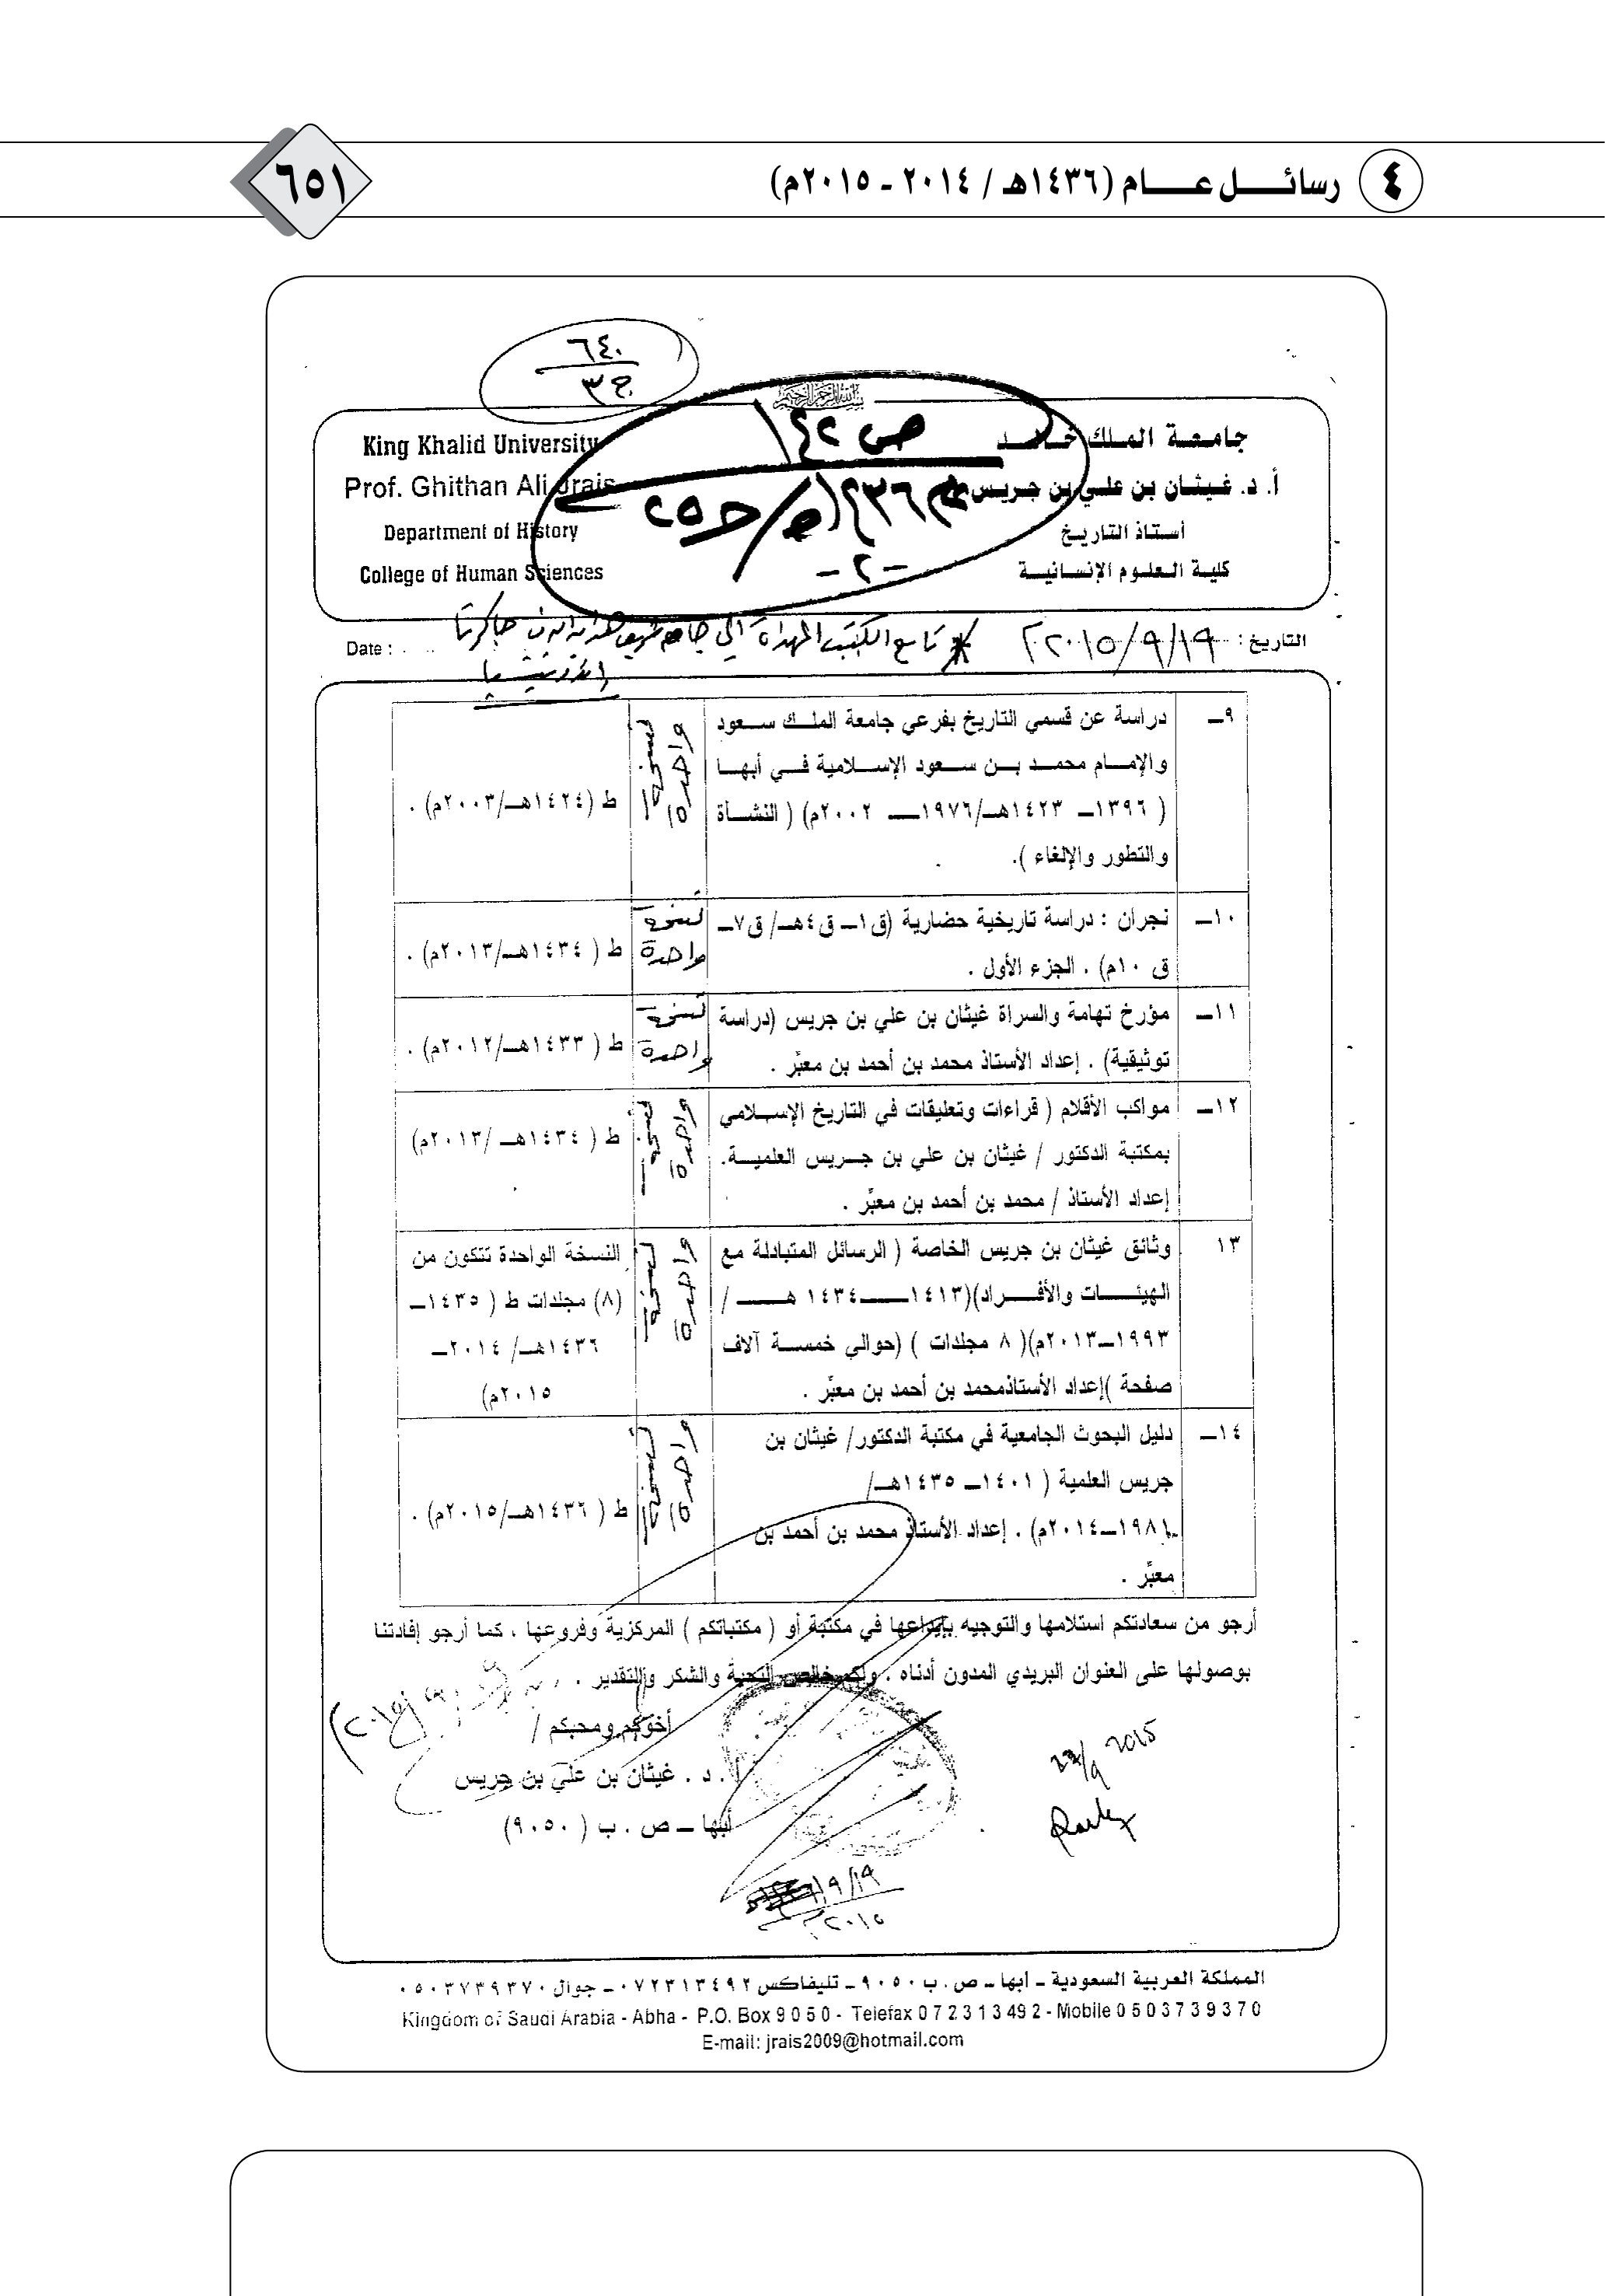 ٤ رسائـــل عـــام (١٤٣٦هـ / ٢٠١٤ - ٢٠١٥م)
٦٥١
٦٤٠
ج٣
بسم الله الرحمن الرحيم
جامعة الملك خالد
أ. د. غيثان بن علي بن جريس
أستاذ التاريخ
كلية العلوم الإنسانية
King Khalid University
Prof. Ghithan Ali Jrais
Department of History
College of Human Sciences
ص ١٤٢
١٤٣٦هـ/ح٢٥
-٢-
التاريخ : ٢٠١٥/٩/١٩م
Date :
* تابع الكتب المهداة إلى جامعة شريف هداية الله جاكرتا
إندونيسيا
٩ـ
دراسة عن قسمي التاريخ بفرعي جامعة الملك سعود
والإمام محمد بن سعود الإسلامية في أبها
( ١٣٩٦ـ ١٤٢٣هـ/١٩٧٦ـ ٢٠٠٢م) ( النشأة
والتطور والإلغاء ).
نسخة واحدة
ط (١٤٢٤هـ/٢٠٠٣م) .
١٠ـ
نجران : دراسة تاريخية حضارية (ق١ـ ق٤هـ/ ق٧ـ
ق ١٠م) . الجزء الأول .
نسخة واحدة
ط ( ١٤٣٤هـ/٢٠١٣م) .
١١ـ
مؤرخ تهامة والسراة غيثان بن علي بن جريس (دراسة
توثيقية) . إعداد الأستاذ محمد بن أحمد بن معبِّر .
نسخة واحدة
ط ( ١٤٣٣هـ/٢٠١٢م) .
١٢ـ
مواكب الأقلام ( قراءات وتعليقات في التاريخ الإسلامي
بمكتبة الدكتور / غيثان بن علي بن جريس العلمية.
إعداد الأستاذ / محمد بن أحمد بن معبِّر .
نسخة واحدة
ط ( ١٤٣٤هـ /٢٠١٣م)
١٣
وثائق غيثان بن جريس الخاصة ( الرسائل المتبادلة مع
الهيئات والأفراد)(١٤١٣ـ١٤٣٤ هـ /
١٩٩٣ـ٢٠١٣م)( ٨ مجلدات ) (حوالي خمسة آلاف
صفحة )إعداد الأستاذمحمد بن أحمد بن معبِّر .
نسخة واحدة
النسخة الواحدة تتكون من
(٨) مجلدات ط ( ١٤٣٥ـ
١٤٣٦هـ/ ٢٠١٤ـ
٢٠١٥م)
١٤ـ
دليل البحوث الجامعية في مكتبة الدكتور/ غيثان بن
جريس العلمية ( ١٤٠١ـ ١٤٣٥هـ/
١٩٨١ـ٢٠١٤م) . إعداد الأستاذ محمد بن أحمد بن
معبِّر .
نسخة واحدة
ط ( ١٤٣٦هـ/٢٠١٥م) .
أرجو من سعادتكم استلامها والتوجيه بإيداعها في مكتبة أو ( مكتباتكم ) المركزية وفروعها ، كما أرجو إفادتنا
بوصولها على العنوان البريدي المدون أدناه ، ولكم خالص التحية والشكر والتقدير .
أخوكم ومحبكم /
أ . د . غيثان بن علي بن جريس
أبها ــ ص . ب ( ٩٠٥٠)
٢٠١٥م
2015
١٩/٩/
٢٠١٥م
المملكة العربية السعودية ـ أبها ـ ص. ب ٩٠٥٠ ـ تليفاكس ٠٧٢٣١٣٤٩٢ ـ جوال ٠٥٠٣٧٣٩٣٧٠
Kingdom of Saudi Arabia - Abha - P.O. Box 9 0 5 0 - Telefax 0 7 2 3 1 3 4 9 2 - Mobile 0 5 0 3 7 3 9 3 7 0
E-mail: jrais2009@hotmail.com